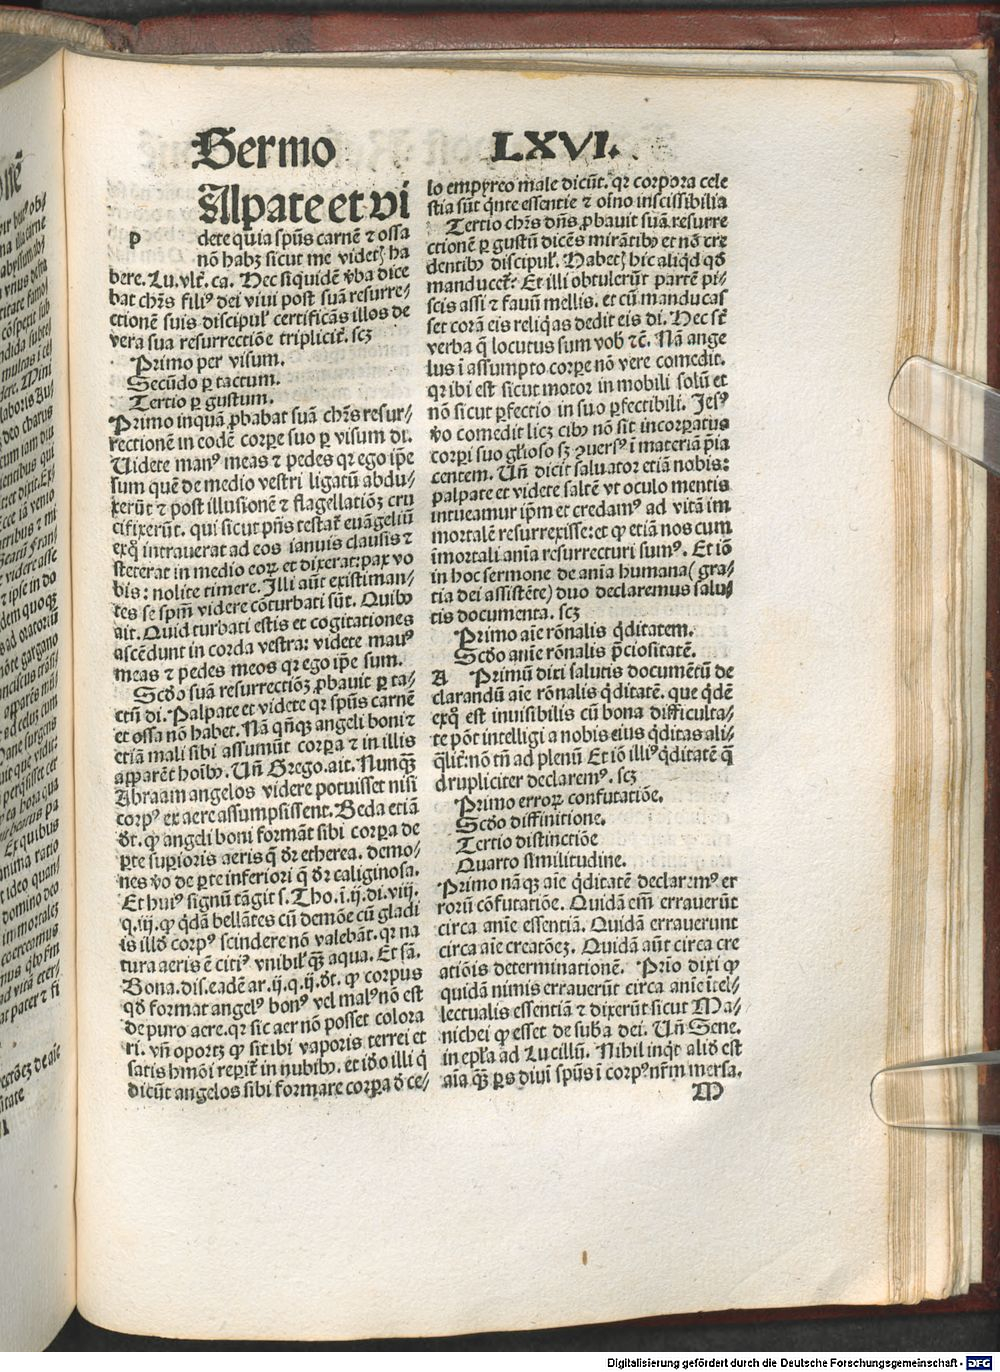 Sermo LXVI.
Alpate et vi
p dete quia spūs carnē ⁊ ossa
nō habꝫ sicut me videtꝭ ha
bere. Lu. vlt̄. ca. Hec siquidē v̄ba dice
bat chr̄s filiꝰ dei viui post suā resurre⸗
ctionē suis discipul̓ certificās illos de
vera sua resurrectiōe triplicit̄. scꝫ
Primo per visum.
Secūdo ꝑ tactum.
Tertio ꝑ gustum.
Primo inquā ꝓbabat suā chr̄s resur⸗
rectionē in eodē corꝑe suo ꝑ visum di.
Uidete manꝰ meas ⁊ pedes qꝛ ego ip̄e
sum quē de medio vestri ligatū abdu⸗
xerūt ⁊ post illusionē ⁊ flagellatiōꝫ cru
cifixerūt. qui sicut pn̄s testat̄ euāgeliū
exq̊ intrauerat ad eos ianuis clausis ⁊
steterat in medio eoꝝ et dixerat: pax vo
bis: nolite timere. Illi aūt existiman⸗
tes se spm̄ videre cōturbati sūt. Quibꝰ
ait. Quid turbati estis et cogitationes
ascēdunt in corda vestra: videte manꝰ
meas ⁊ pedes meos qꝛ ego ip̄e sum.
Scd̄o suā resurrectiōꝫ ꝓbauit ꝑ ta⸗
ctū di. Palpate et videte qꝛ spūs carnē
et ossa nō habet. Nā qn̄qꝫ angeli boni ⁊
etiā mali sibi assumūt corꝑa ⁊ in illis
apparēt hoībꝰ. Un̄ Grego. ait. Nunqꝫ
Abraam angelos videre potuisset nisi
corpꝰ ex aere assumpsissent. Beda etiā
dt̄. ꝙ angeli boni formāt sibi corꝑa de
ꝑte suꝑioris aeris q̄ dr̄ etherea. demo⸗
nes v̄o de ꝑte inferiori q̄ dr̄ caliginosa.
Et huiꝰ signū tāgit s. Tho. ī. ij. di. viij.
q. iij. ꝙ q̄dā bellātes cū demōe cū gladi
is illd̄ corpꝰ scindere nō valebāt. qꝛ na
tura aeris ē citiꝰ vnibil̓ qꝫ aqua. Et sā.
Bona. dis. eadē ar. ij. q. ij. dt̄. ꝙ corpus
qd̄ format angelꝰ bonꝰ vel malꝰ nō est
de puro aere. qꝛ sic aer nō posset colora
ri. vn̄ oportꝫ ꝙ sit ibi vaporis terrei et
satis hmōi reꝑit̄ in nubibꝰ. et iō illi q̇
dicūt angelos sibi formare corꝑa d̄ ce⸗
lo empyreo male dicūt. qꝛ corpora cele
stia sūt qn̄te essentie ⁊ oīno inscissibilia
Tertio chr̄s dn̄s ꝓbauit suā resurre
ctionē ꝑ gustū dicēs mirātibꝰ et nō cre
dentibꝰ discipul̓. Habetꝭ hic aliqd qd̄
manducet̄: Et illi obtulerūt partē pi⸗
scis assi ⁊ fauū mellis. et cū manducas
set corā eis reliq̇as dedit eis di. Hec sт̄
verba q̄ locutus sum vob̓ ⁊c̄. Nā ange
lus ī assumpto corꝑe nō vere comedit.
qꝛ ibi est sicut motor in mobili solū et
nō sicut ꝑfectio in suo ꝑfectibili. Jesꝰ
v̄o comedit licꝫ cibꝰ nō sit incorꝑatus
corꝑi suo gl̓ioso sꝫ ꝯuersꝰ ī materiā p̄ia
centem. Un̄ dicit saluator etiā nobis:
palpate et videte saltē vt oculo mentis
intueamur ip̄m et credamꝰ ad vitā im
mortalē resurrexisse: et ꝙ etiā nos cum
īmortali aīa resurrecturi sumꝰ. Et iō
in hoc sermone de anīa humana (gra⸗
tia dei assistēte) duo declaremus salu⸗
tis documenta. scꝫ
Primo aīe rōnalis q̇ditatem.
Scd̄o anīe rōnalis p̄ciositatē.
A Primū dixi salutis documētū de
clarandū aīe rōnalis q̇ditatē. que q̇dē
exq̊ est inuisibilis cū bona difficulta⸗
te pōt intelligi a nobis eius q̇ditas ali⸗
q̄lit̄: nō tn̄ ad plenū Et iō illiꝰ q̇ditatē q̄
drupliciter declaremꝰ. scꝫ
Primo erroꝝ confutatiōe.
Scd̄o diffinitione.
Tertio distinctiōe
Quarto similitudine.
Primo nāqꝫ aīe q̇ditatē declaremꝰ er
rorū cōfutatiōe. Quidā em̄ errauerūt
circa anīe essentiā. Quidā errauerunt
circa aīe creatōeꝫ. Quidā aūt circa cre
atiōis determinationē. Prīo dixi ꝙ
quidā nimis errauerūt circa anīe ītel⸗
lectualis essentiā ⁊ dixerūt sicut Ma⸗
nichei ꝙ esset de suba dei. Un̄ Sene.
in epl̓a ad Lucillū. Nihil inqt aliđ est
aīa qꝫ ꝑs diuī spūs ī corpꝰ nr̄m mersa.
M
Digitalisierung gefördert durch die Deutsche Forschungsgemeinschaft - DFG